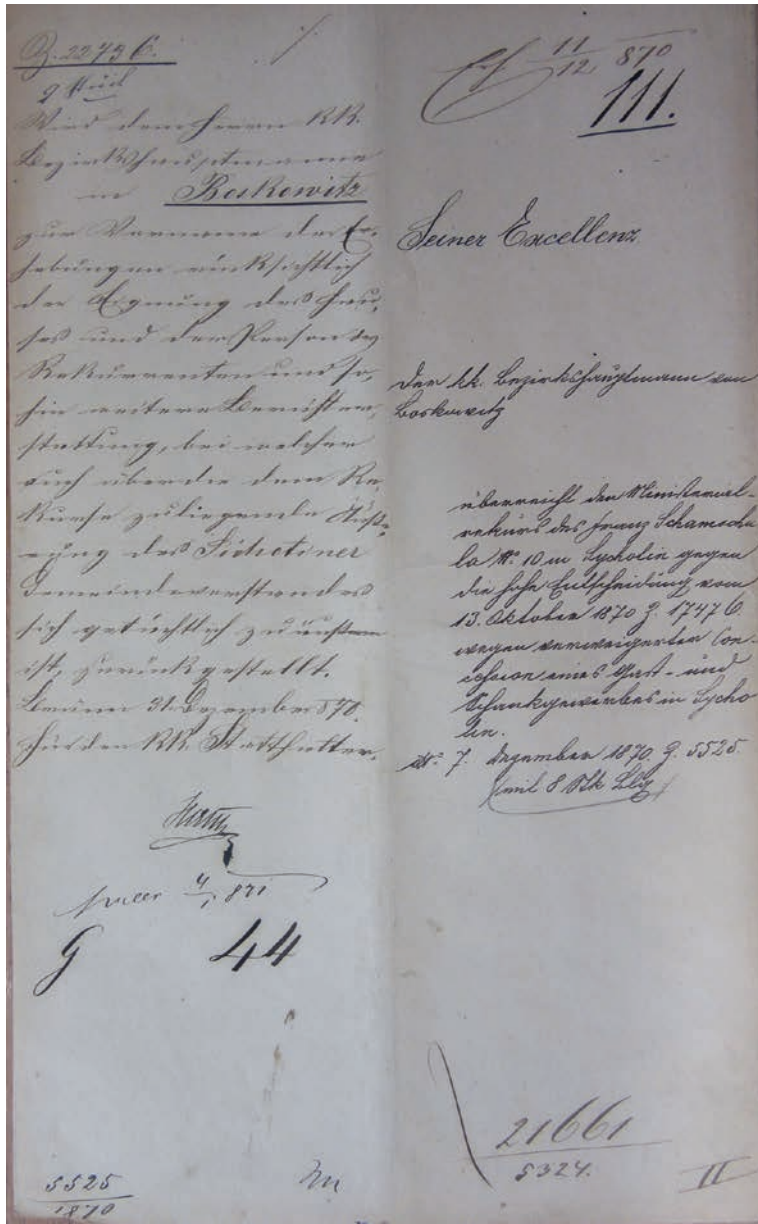 Z. 22736.
9 Stück
Wird dem Herrn KK.
Bezirkshauptmanne
in Boskowitz
zur Vorname der Er-
hebungen rücksichtlich
der Eignung des Hau-
ses und der Person des
Rekurrenten und so,
hin weitere Berichter,
stattung, bei welcher
auch über die dem Re,
kurse zuliegende Äuße,
rung des Sichotiner
Gemeindevorstandes
sich gutächtlich zu äußern
ist, zurückgestellt.
Brünn 31. Dezember 870.
Für den KK. Statthalter.
4/1 871
G 44
5525
1870
11/12 870
111.
Seiner Excellenz
Der kk. Bezirkshauptmann von
Boskowitz
überreicht den Ministerial-
rekurs des Franz Schamscha
la No. 10 in Sycholin gegen
die hohe Entscheidung vom
13. Oktober 1870 Z. 17476
wegen verweigerter Con-
cession eines Gast- und
Schankgewerbes in Sycho
lin.
7. Dezember 1870. Z. 5525.
mit 8 Stk Blg
21661
5324.
II